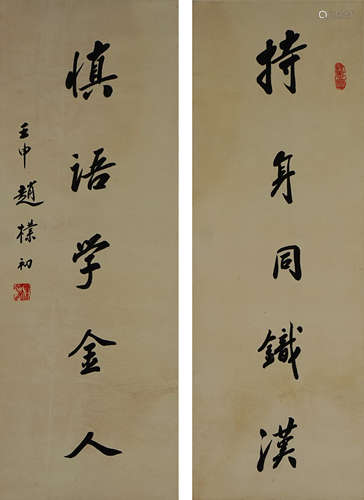 持身同鐵漢
慎語学金人
壬申 趙樸初